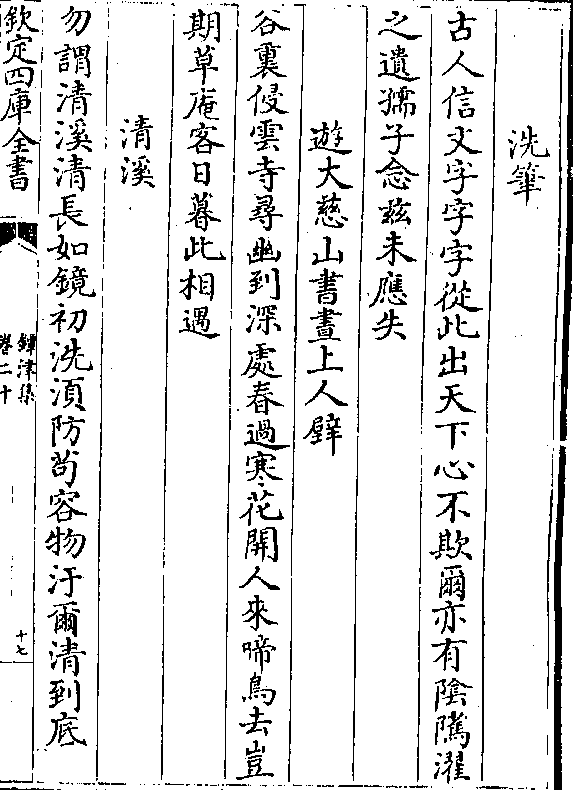 洗筆
古人信文字字字從此出天下心不欺爾亦有陰隲濯
之遺孺子念茲未應失
遊大慈山書晝上人壁
谷裏侵雲寺尋幽到深處春過寒花開人來啼鳥去豈
期草庵客日暮此相遇
清溪
勿謂清溪清長如鏡初洗湏防茍容物汙爾清到底
欽定四庫全書
鐔津集
卷二十
十七